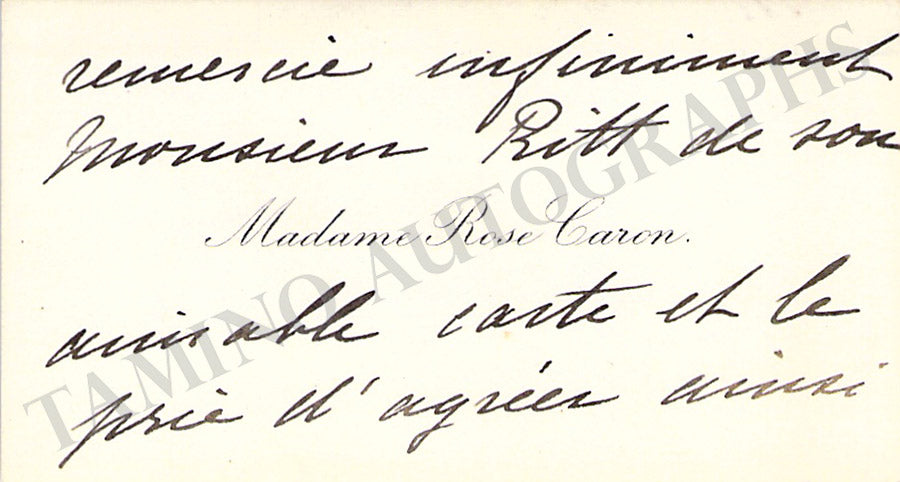 remercie infiniment
Monsieur Ritt de son
Madame Rose Caron.
aimable carte et le
prie d'agréer ainsi
TAMINO AUTOGRAPHS